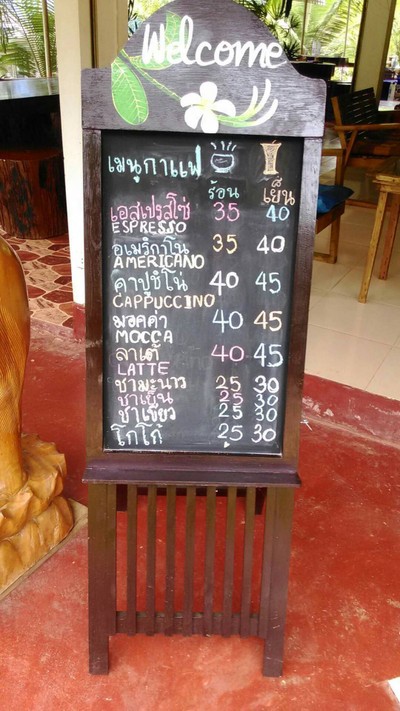 Welcome
เมนูกาแฟ
ร้อน เย็น
เอสเปรสโซ่ 35 40
ESPRESSO
อเมริกาโน 35 40
AMERICANO
คาปูชิโน่ 40 45
CAPPUCCINO
มอคค่า 40 45
MOCCA
ลาเต้ 40 45
LATTE
ชามะนาว 25 30
ชาเย็น 25 30
ชาเขียว 25 30
โกโก้ 25 30